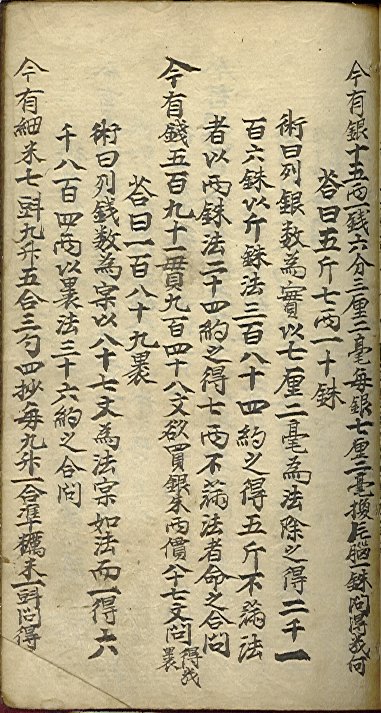 今有銀十五兩戔六分三厘二毫每銀七厘二毫換片腦一銖問得幾何
荅曰五斤七兩一十銖
術曰列銀數為實以七厘二毫為法除之得二千一
百六銖以斤銖法三百八十四約之得五斤不滿法
者以兩銖法二十四約之得七兩不滿法者命之合問
今有錢五百九十一貫九百四十八文欲買銀朱兩價八十七文問得幾裹
荅曰一百八十九裹
術曰列錢數為宲以八十七文為法宲如法而一得六
千八百四兩以裹法三十六約之合問
今有細米七㪷九升五合三勺四抄每九升一合準糲米一㪷問得